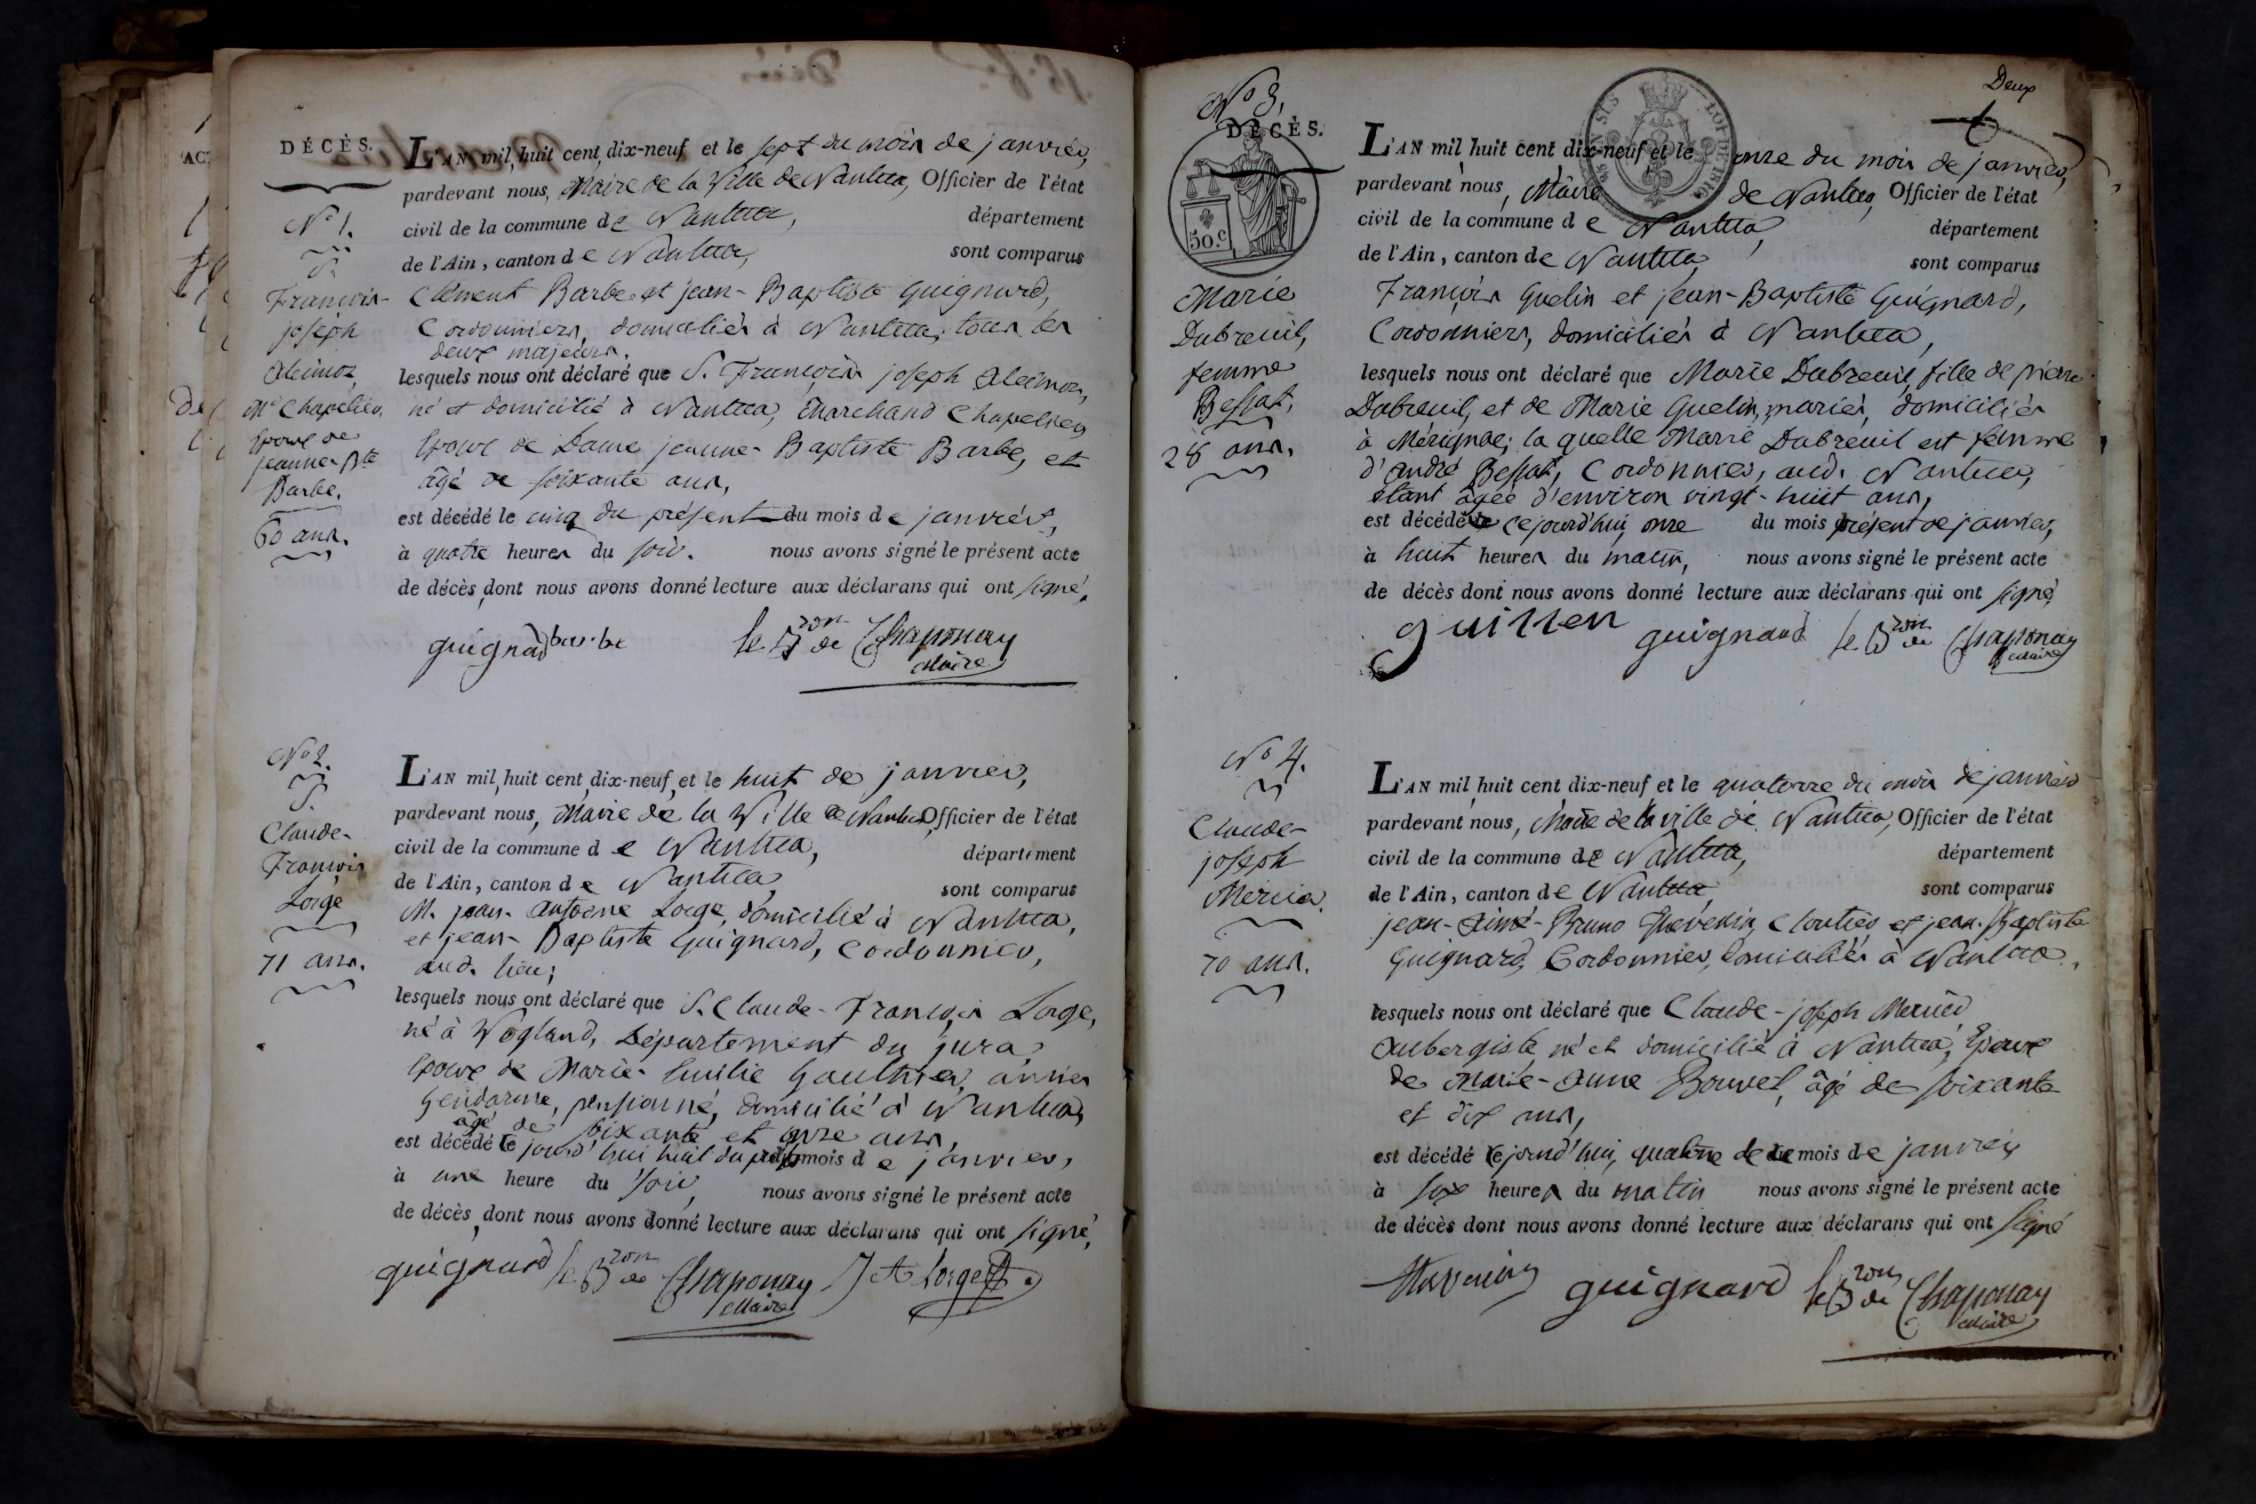 DÉCÈS.
N° 1.
S.
François-
joseph
Md Chapelier,
Epoux de
jeanne-Bte
Barbe.
60 ans.
L'AN mil huit cent dix-neuf et le sept du mois de janvier,
pardevant nous, Maire de la Ville de Nantua, Officier de l'état
civil de la commune de Nantua, département
de l'Ain, canton de Nantua, sont comparus
Clément Barbe et jean-Baptiste Guignard,
Cordonniers, domiciliés à Nantua, tous les
deux majeurs.
lesquels nous ont déclaré que S. François joseph
né et domicilié à Nantua, Marchand Chapelier,
Epoux de Dame jeanne-Baptiste Barbe, et
âgé de soixante ans,
est décédé le cinq du présent du mois de janvier,
à quatre heures du soir. nous avons signé le présent acte
de décès dont nous avons donné lecture aux déclarans qui ont signé.
guignard barbe le Bron de Chaponay
Maire
N° 2.
S.
Claude-
François
Lorge
71 ans.
L'AN mil huit cent dix-neuf et le huit de janvier,
pardevant nous, Maire de la Ville de Nantua, Officier de l'état
civil de la commune de Nantua, département
de l'Ain, canton de Nantua, sont comparus
M. jean-Antoine Lorge, domicilié à Nantua,
et jean-Baptiste Guignard, Cordonnier,
aud. lieu;
lesquels nous ont déclaré que S. Claude-François Lorge,
né à Vogland, Département du jura,
Epoux de Marie-Emilie Gauthier, ancien
Gendarme, pensionné, domicilié à Nantua,
âgé de soixante et onze ans,
est décédé cejourd'hui huit du présent mois de janvier,
à une heure du soir, nous avons signé le présent acte
de décès dont nous avons donné lecture aux déclarans qui ont signé,
guignard le Bron de Chaponay J A Lorge
Maire
Deux
N° 3.
DÉCÈS.
50.c
Marie
Dubreuil,
femme
Bessat,
28 ans.
L'AN mil huit cent dix-neuf et le onze du mois de janvier,
pardevant nous, Maire de Nantua, Officier de l'état
civil de la commune de Nantua, département
de l'Ain, canton de Nantua, sont comparus
François Guelin et jean-Baptiste Guignard,
Cordonniers, domiciliés à Nantua,
lesquels nous ont déclaré que Marie Dubreuil, fille de pierre
Dubreuil, et de Marie Guelin, mariés, domiciliés
à Mérignac; la quelle Marie Dubreuil est femme
d'andré Bessat, Cordonnier, aud. Nantua,
étant âgée d'environ vingt-huit ans,
est décédée cejourd'hui onze du mois présent de janvier,
à huit heures du matin, nous avons signé le présent acte
de décès dont nous avons donné lecture aux déclarans qui ont signé
guignard le Bron de Chaponay
Maire
N° 4.
Claude-
joseph
Mercier.
70 ans.
L'AN mil huit cent dix-neuf et le quatorze du mois de janvier
pardevant nous, Maire de la ville de Nantua, Officier de l'état
civil de la commune de Nantua, département
de l'Ain, canton de Nantua, sont comparus
jean-Aimé-Bruno Thévenin, Cloutier et jean-Baptiste
Guignard, Cordonnier, domiciliés à Nantua.
lesquels nous ont déclaré que Claude-joseph Mercier
Aubergiste, né et domicilié à Nantua, Epoux
de Marie-Anne Bouvet, âgé de soixante
et dix ans,
est décédé cejourd'hui, quatorze de ce mois de janvier,
à six heures du matin nous avons signé le présent acte
de décès dont nous avons donné lecture aux déclarans qui ont signé
Thevenin guignard le Bron de Chaponay
Maire